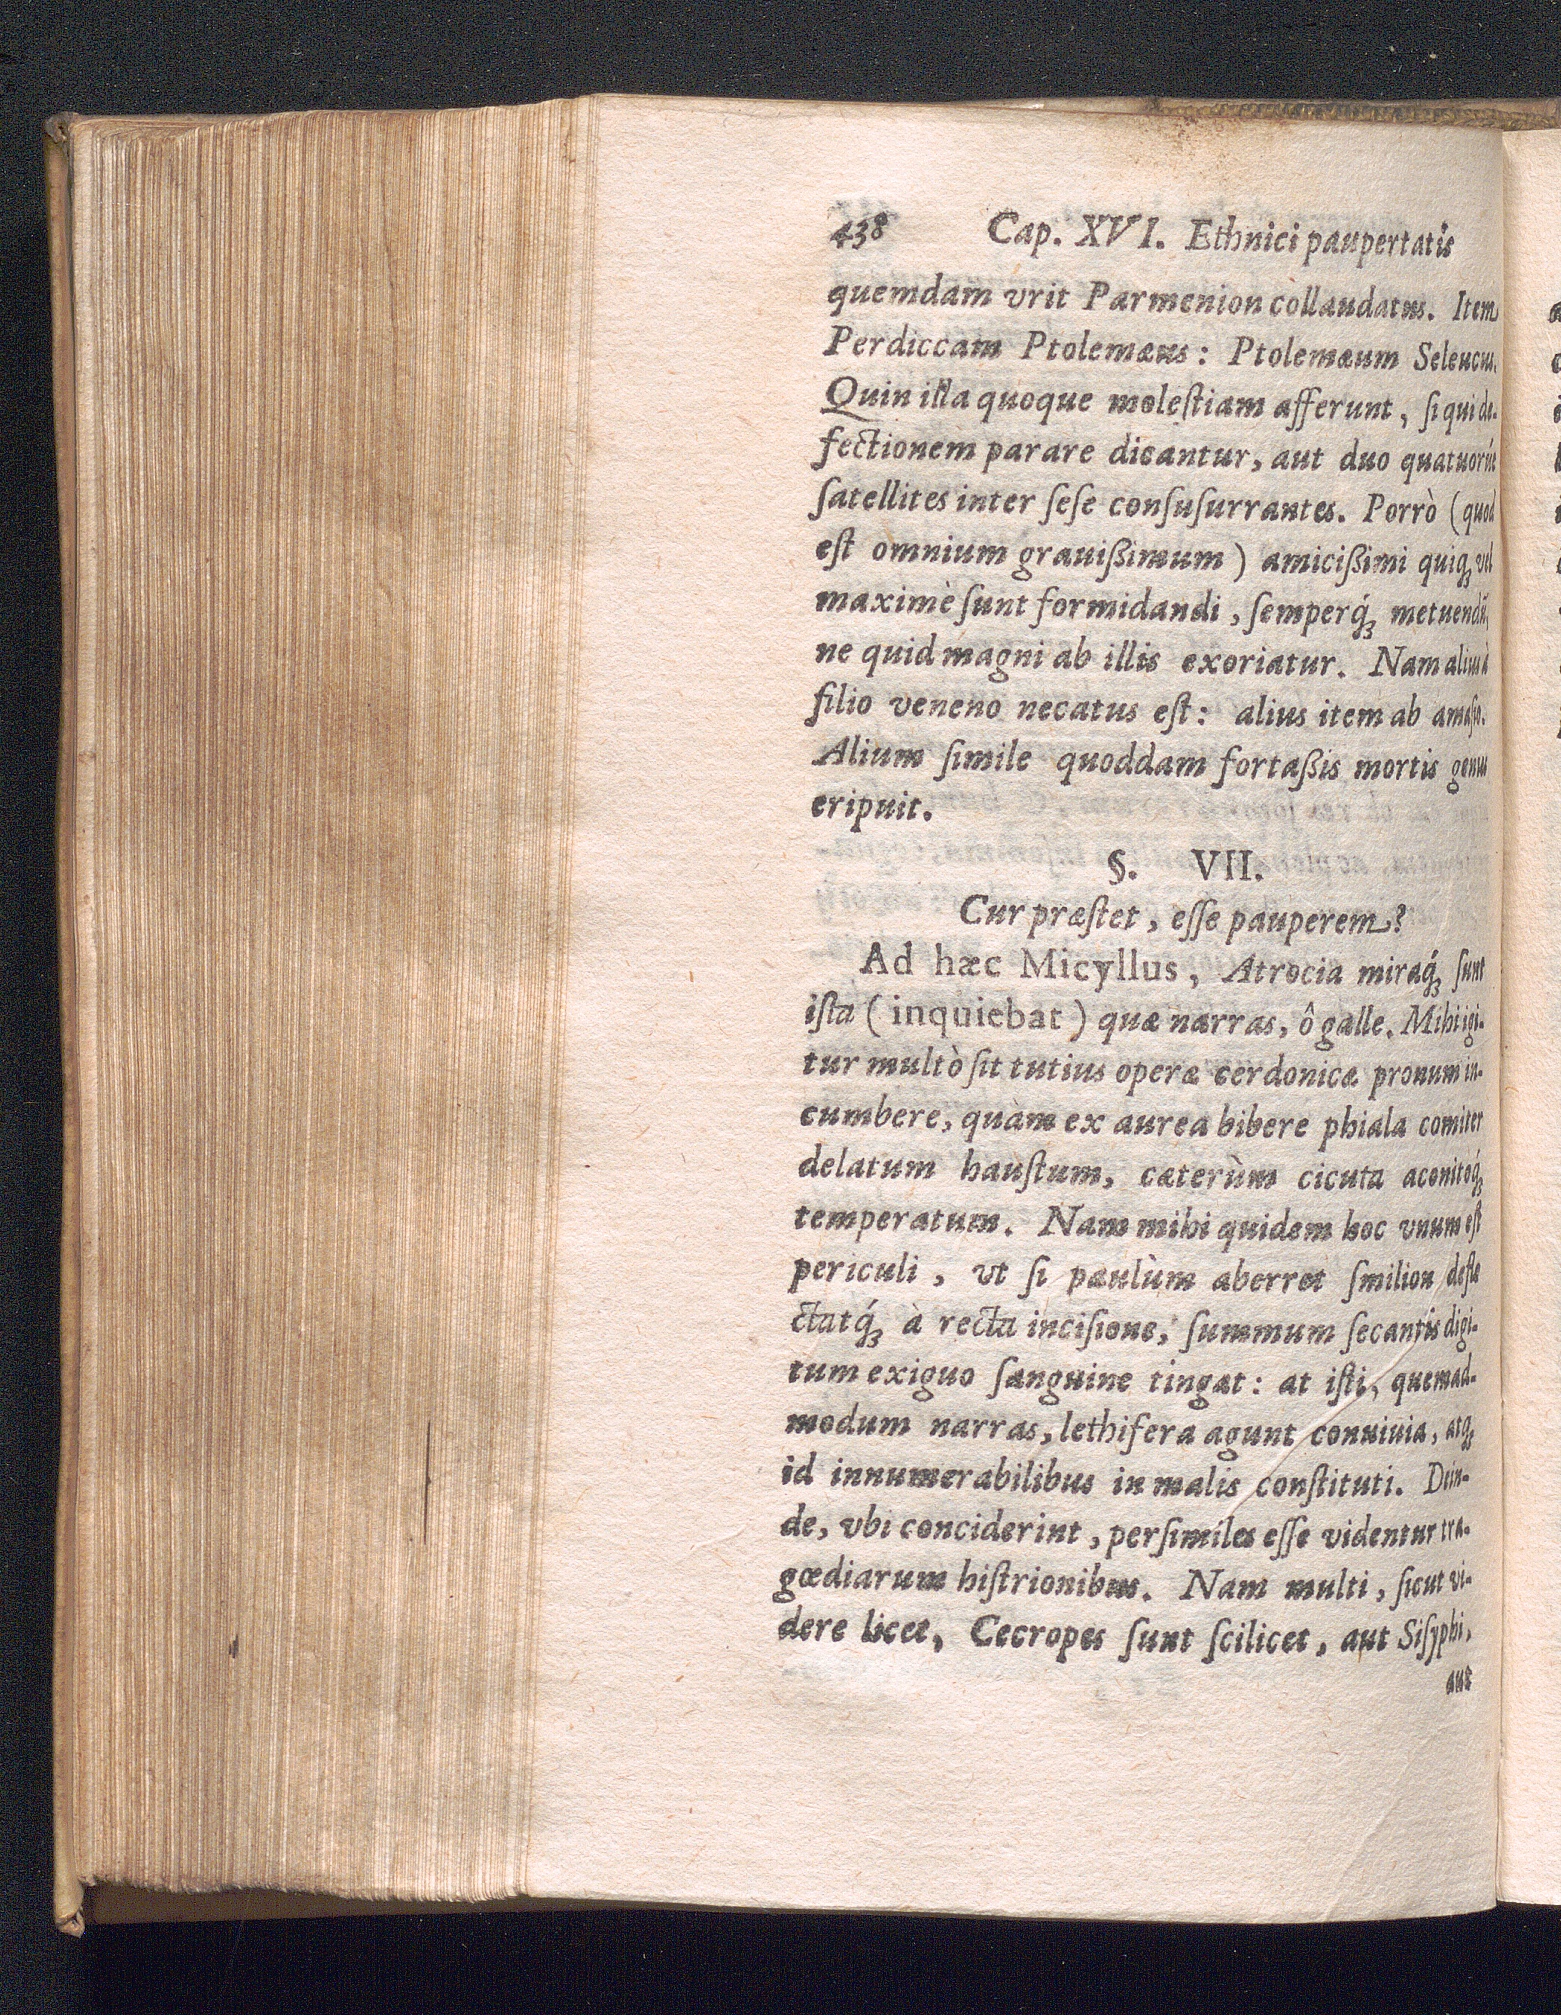 438 Cap. XVI. Ethnici paupertatis
quemdam vrit Parmenion collaudatus. Item
Perdiccam Ptolemæus: Ptolemæum Seleucus.
Quin illa quoque moleſtiam afferunt, ſi qui de-
fectionem parare dicantur, aut duo quatuorúe
ſatellites inter ſeſe conſuſurrantes. Porrò (quod
eſt omnium grauißimum) amicißimi quiq́; vel
maximè ſunt formidandi, ſemperq́; metuendũ,
ne quid magni ab illis exoriatur. Nam alius à
filio veneno necatus eſt: alius item ab amaſio.
Alium ſimile quoddam fortaßis mortis genus
eripuit.
§. VII.
Cur præſtet, eſſe pauperem?
Ad hæc Micyllus, Atrocia miraq́; ſunt
iſta (inquiebat) quæ narras, ô galle. Mihi igi-
tur multò ſit tutius operæ cerdonicæ pronum in-
cumbere, quàm ex aurea bibere phiala comiter
delatum hauſtum, cæterùm cicuta aconitoq́;
temperatum. Nam mihi quidem hoc vnum eſt
periculi, vt ſi paulùm aberret ſmilion defle
ctatq́; à recta inciſione, ſummum ſecantis digi-
tum exiguo ſanguine tingat: at iſti, quemad-
modum narras, lethifera agunt conuiuia, atq;
id innumerabilibus in malis conſtituti. Dein-
de, vbi conciderint, perſimiles eſſe videntur tra-
gœdiarum hiſtrionibus. Nam multi, ſicut vi-
dere licet, Cecropes ſunt ſcilicet, aut Siſyphi,
aut